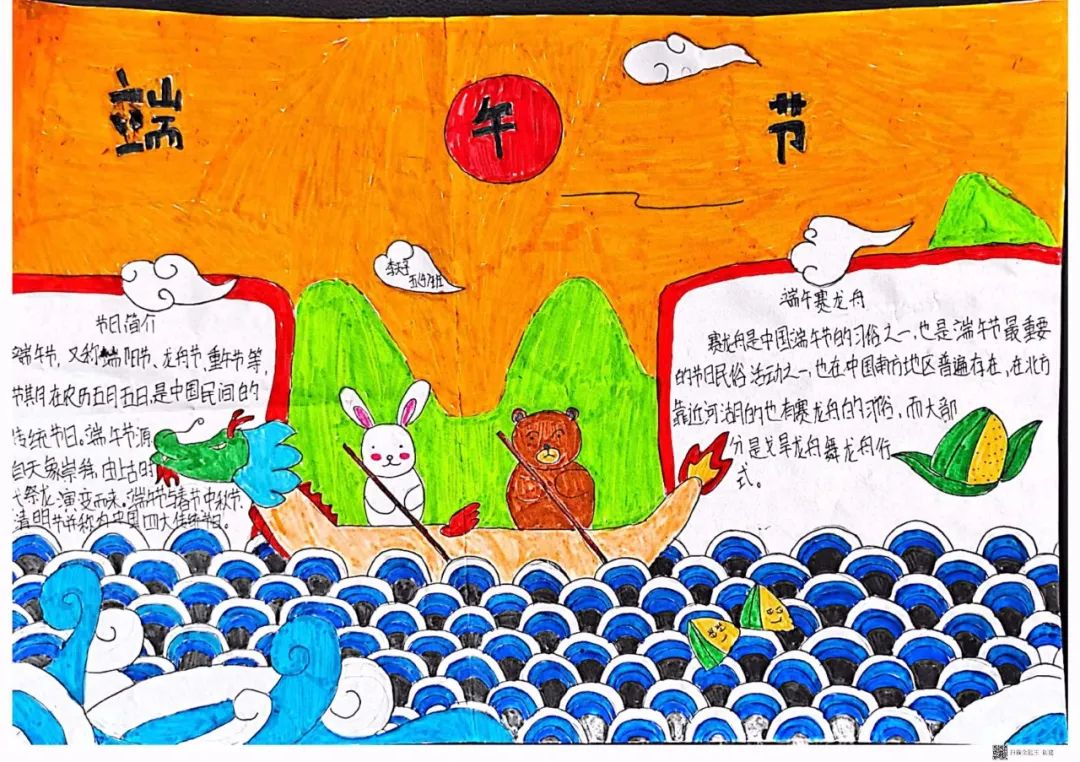 端 午 节
节日简介
端午节，又称端阳节、龙舟节、重午节等，
节期在农历五月五日，是中国民间的
传统节日。端午节源
自天象崇拜，由上古时
代祭龙演变而来。端午节与春节、中秋节、
清明节并称为中国四大传统节日。
五(5)班
端午赛龙舟
赛龙舟是中国端午节的习俗之一，也是端午节最重要
的节日民俗活动之一，也在中国南方地区普遍存在，在北方
靠近河湖的也有赛龙舟的习俗，而大部
分是旱龙舟舞龙舟行
式。
扫描全能王 创建